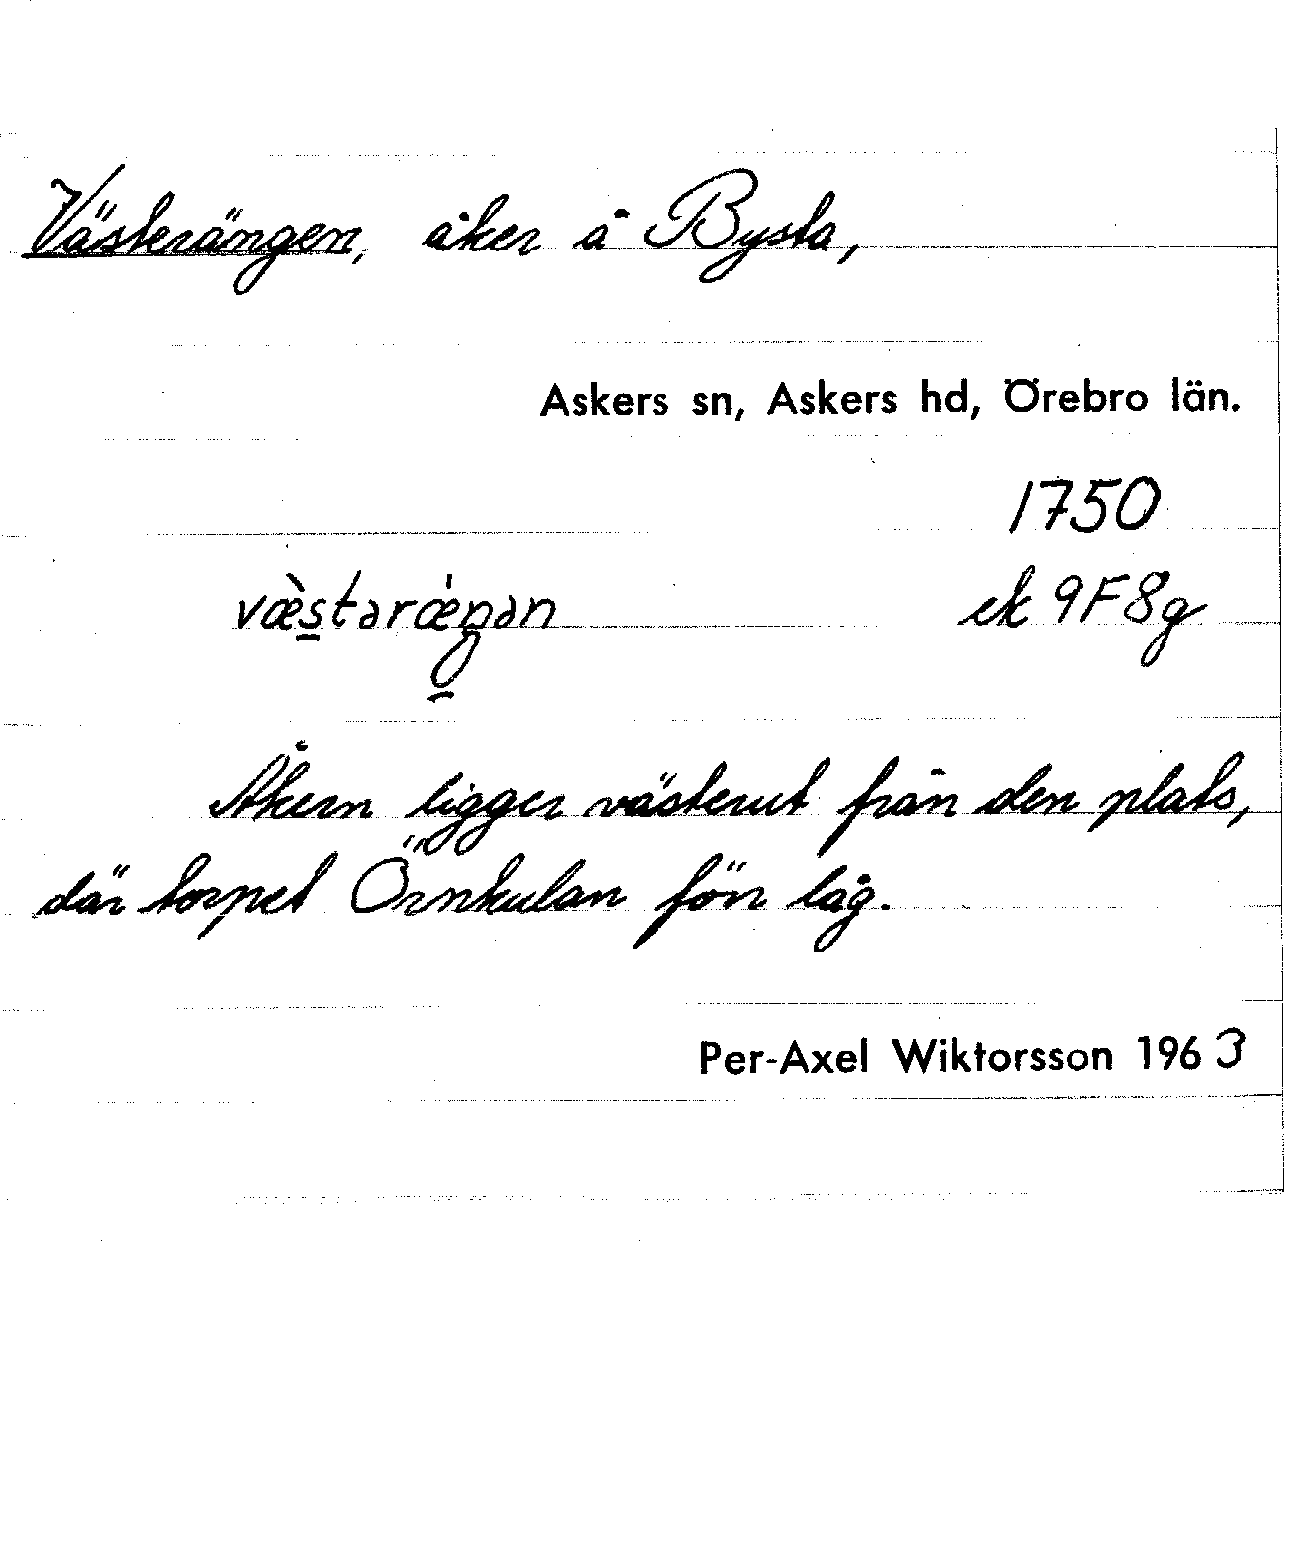 Västerängen, åker å Bysta,
Askers sn, Askers hd, Örebro län.
1750
væ̀stərǽŋən ek 9F8g
Åkern ligger västerut från den plats,
där torpet Örnkulan förr låg.
Per-Axel Wiktorsson 1963